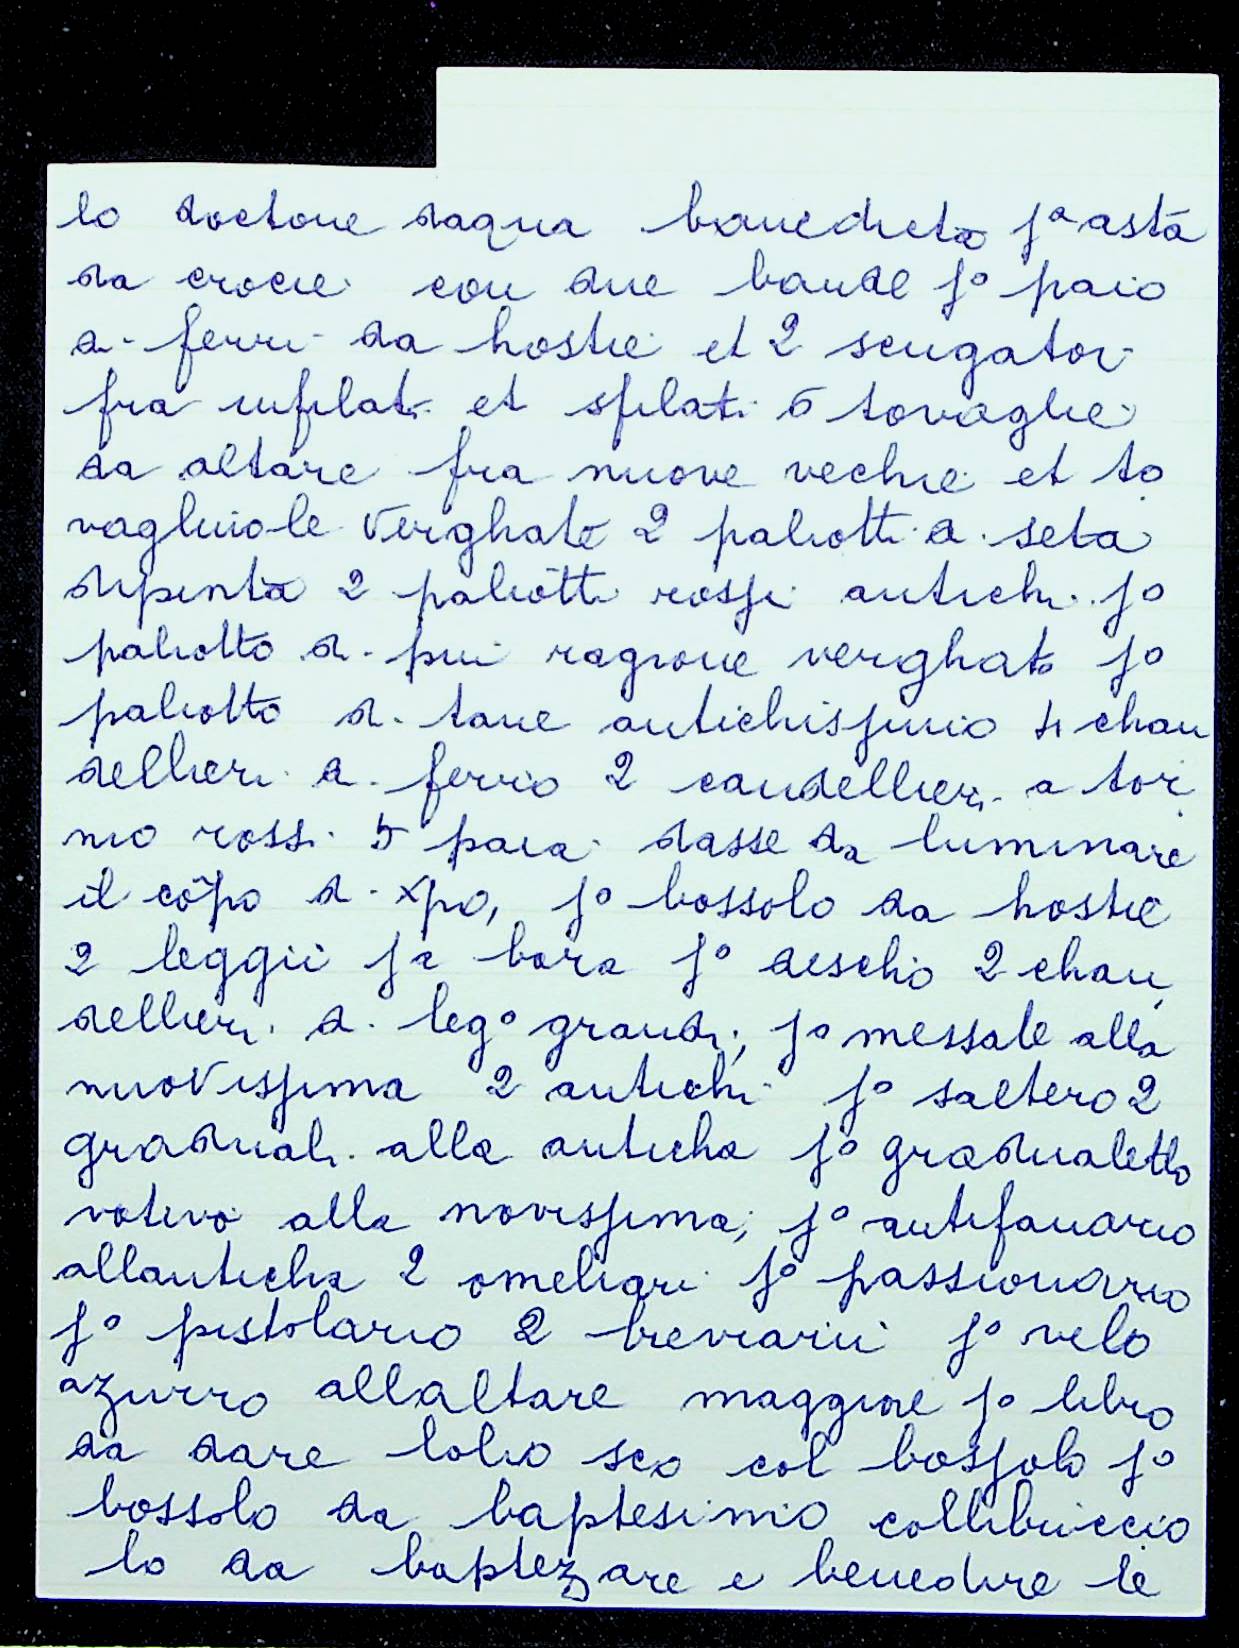 lo doctone daqua benedicta jª asta
da crocie con due bande jº paio
di ferri da hostie et 2 sciugatoi
fra infilati et sfilati 6 tovaglie
da altare fra nuove vechie et to
vagliuole verghate 2 paliotti di seta
dipinta 2 paliotti rossi antichi jº
paliotto di piu ragione verghato jº
paliotto di lane antichissimo 4 chan
dellieri di ferrio 2 candellieri a tor
nio rossi 5 paia dasse da luminare
il copo di xpo, jº bossolo da hostie
2 leggii ja bara jº deschio 2 chan
dellieri di legº grandi; jº messale alla
nuovissima 2 antichi jº saltero 2
graduali alla anticha jº gradualetto
votivo alla novissima; jº antifanario
allanticha 2 omeliari jº passionario
jº pistolario 2 breviarii jº velo
azurro allaltare maggiore jº libro
da dare lolio sco col bossolo jº
bossolo da baptesimio collibriccio
lo da baptezare e benedire le